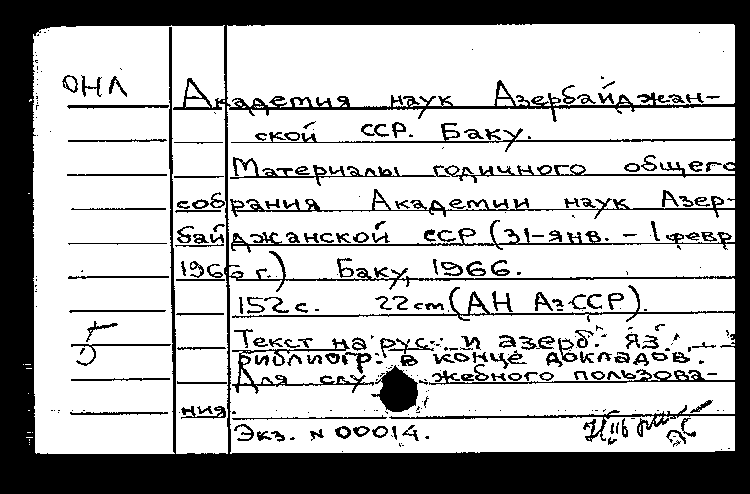 ОНЛ
Академия наук Азербайджан-
ской ССР. Баку.
Материалы годичного общего
собрания Академии наук Азер-
байджанской ССР (31-янв. - 1 февр
1966 г.) Баку, 1966.
152 с. 22 cm (АН АзССР).
Текст на рус. и азерб. яз.
библиогр. в конце докладов.
Для служебного пользова-
ния.
Экз. N 00014.